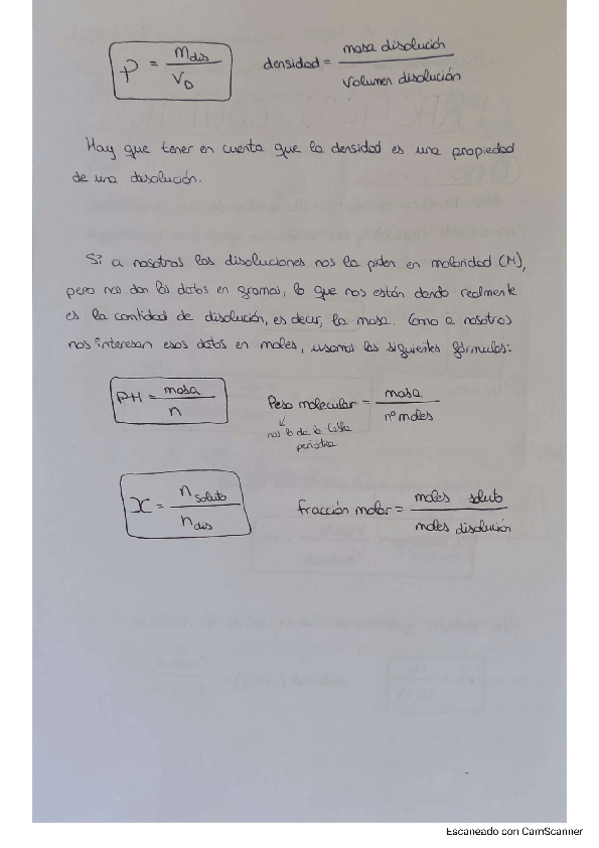 ρ = m dis / V D    densidad = masa disolución / volumen disolución
Hay que tener en cuenta que la densidad es una propiedad
de una disolución.
Si a nosotros las disoluciones nos la piden en molaridad (M),
pero nos dan los datos en gramos, lo que nos están dando realmente
es la cantidad de disolución, es decir, la masa. Como a nosotros
nos interesan esos datos en moles, usamos las siguientes fórmulas:
PM = masa / n    Peso molecular = masa / nº moles
nos lo da la tabla
periódica
X = n soluto / n dis    fracción molar = moles soluto / moles disolución
Escaneado con CamScanner